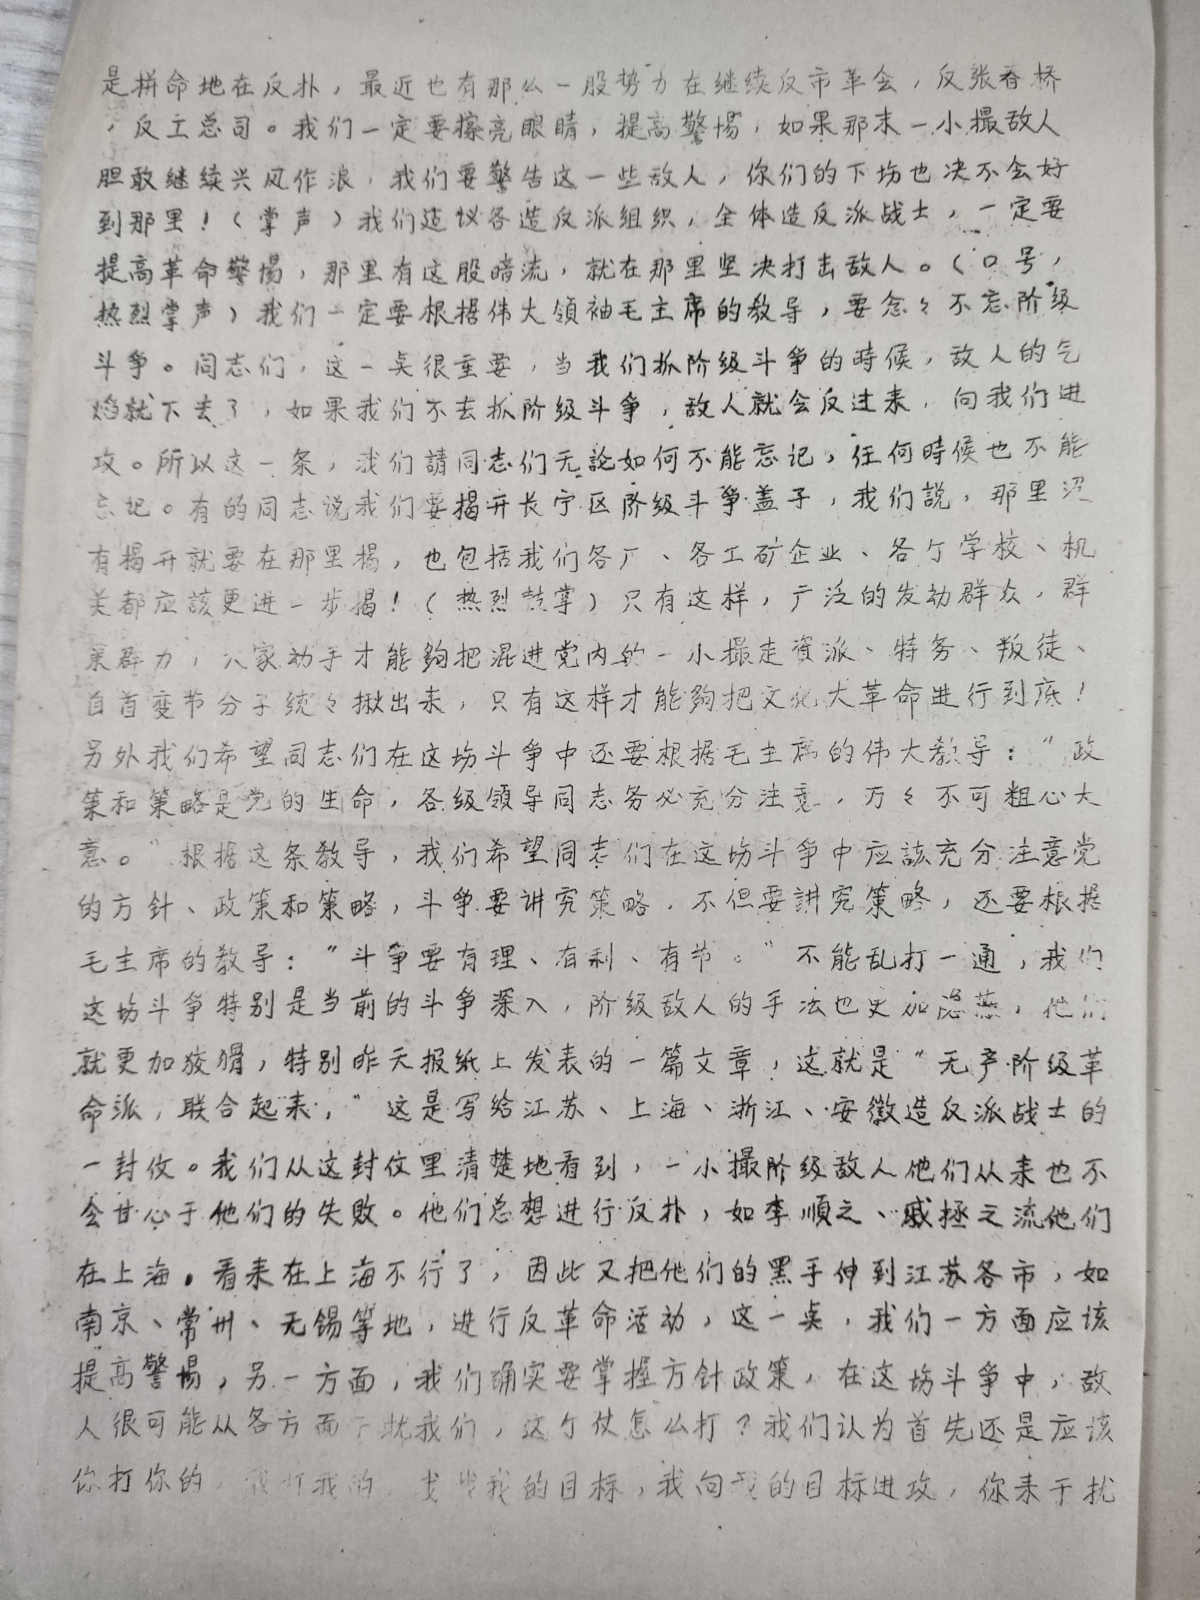 是拼命地在反扑，最近也有那么一股势力在继续反市革会，反张春桥
，反工总司。我们一定要擦亮眼睛，提高警惕，如果那末一小撮敌人
胆敢继续兴风作浪，我们要警告这一些敌人，你们的下场也决不会好
到那里！（掌声）我们建议各造反派组织，全体造反派战士，一定要
提高革命警惕，那里有这股暗流，就在那里坚决打击敌人。（口号，
热烈掌声）我们一定要根据伟大领袖毛主席的教导，要念々不忘阶级
斗争。同志们，这一点很重要，当我们抓阶级斗争的時候，敌人的气
焰就下去了，如果我们不去抓阶级斗争，敌人就会反过来，向我们进
攻。所以这一条，我们請同志们无論如何不能忘记，任何時候也不能
忘记。有的同志说我们要揭开长宁区阶级斗争盖子，我们説，那里没
有揭开就要在那里揭，也包括我们各厂、各工矿企业、各个学校、机
关都应該更进一步揭！（热烈鼓掌）只有这样，广泛的发动群众，群
策群力，大家动手才能夠把混进党内的一小撮走资派、特务、叛徒、
自首变节分子统々揪出来，只有这样才能夠把文化大革命进行到底！
另外我们希望同志们在这场斗争中还要根据毛主席的伟大教导：“政
策和策略是党的生命，各级领导同志务必充分注意，万々不可粗心大
意。”根据这条教导，我们希望同志们在这场斗争中应該充分注意党
的方针、政策和策略，斗争要讲究策略，不但要讲究策略，还要根据
毛主席的教导：“斗争要有理、有利、有节。”不能乱打一通，我们
这场斗争特别是当前的斗争深入，阶级敌人的手法也更加隐蔽，他们
就更加狡猾，特别昨天报纸上发表的一篇文章，这就是“无产阶级革
命派，联合起来，”这是写给江苏、上海、浙江、安徽造反派战士的
一封伩。我们从这封伩里清楚地看到，一小撮阶级敌人他们从来也不
会甘心于他们的失败。他们总想进行反扑，如李順之、戚拯之流他们
在上海，看来在上海不行了，因此又把他们的黑手伸到江苏各市，如
南京、常州、无锡等地，进行反革命活动，这一点，我们一方面应该
提高警惕，另一方面，我们确实要掌握方针政策，在这场斗争中，敌
人很可能从各方面干扰我们，这个仗怎么打？我们认为首先还是应该
你打你的，我打我的，我的目标，我向我的目标进攻，你来干扰